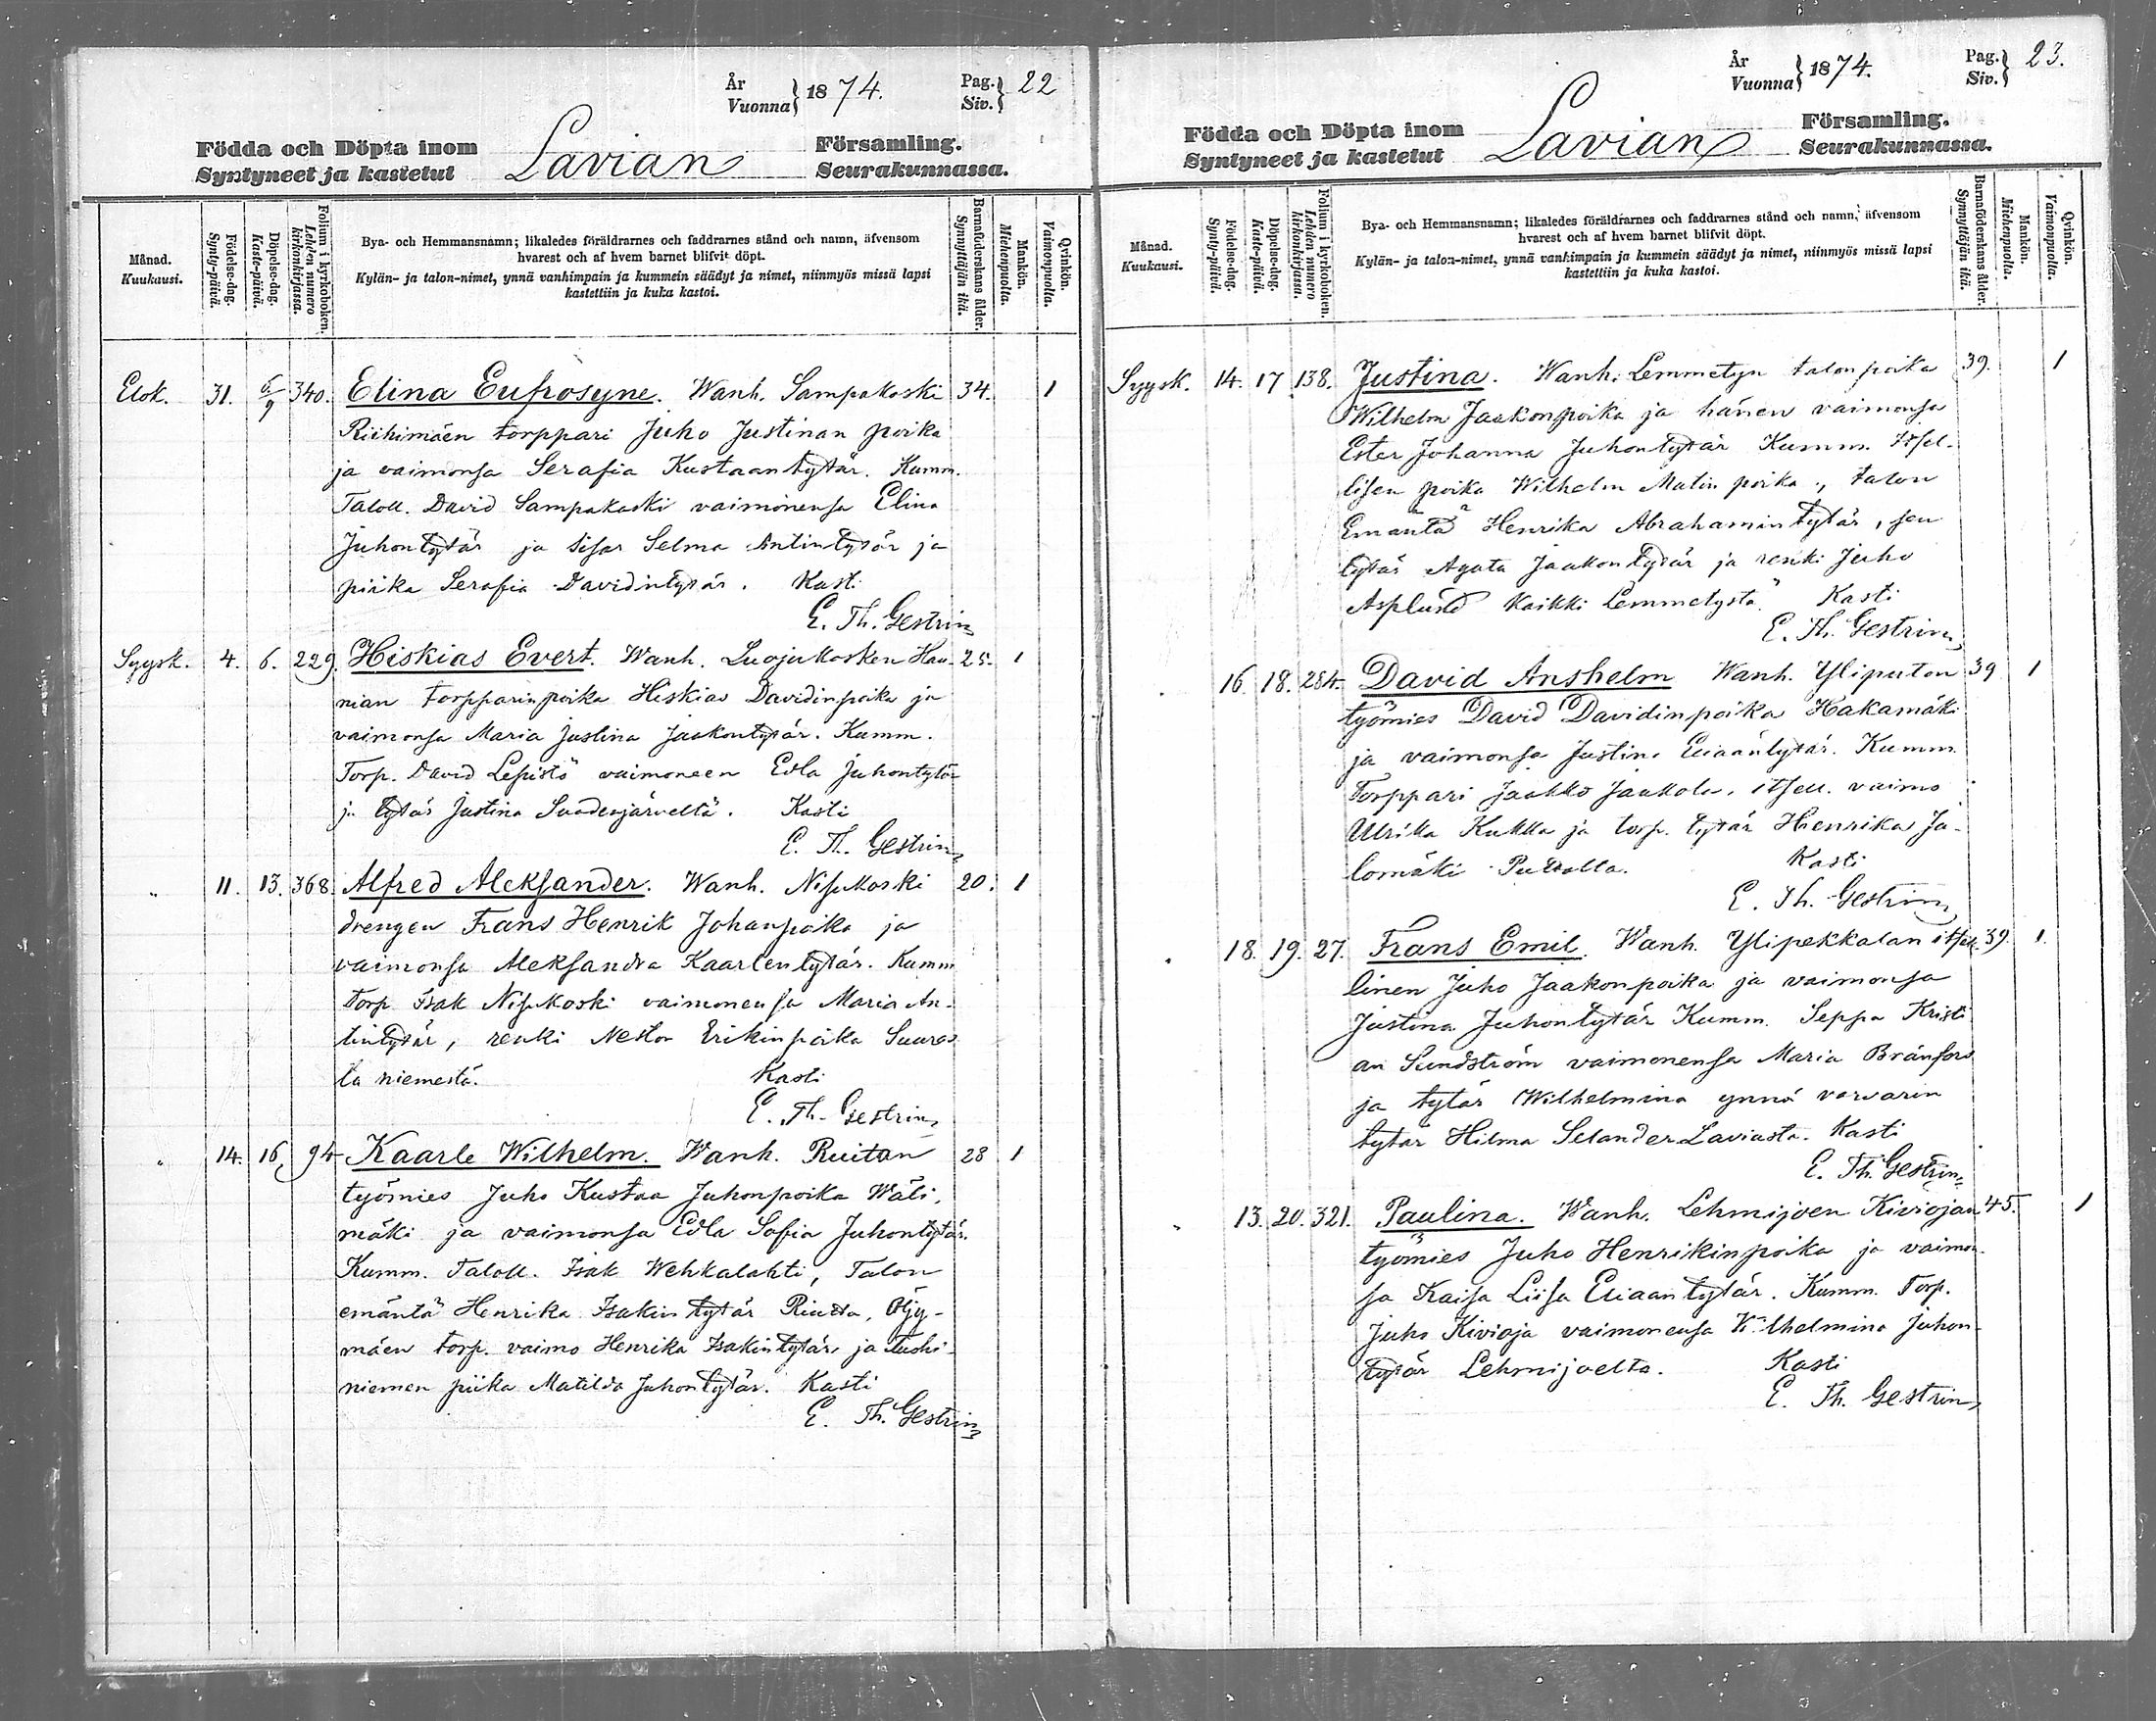 År
Vuonna } 1874.
Pag.
Siv. } 22
Födda och Döpta inom
Syntyneet ja kastetut
Lavian
Församling.
Seurakunnassa.
Månad.
Kuukausi.
Födelse-dag.
Synty-päivä.
Döpelse-dag.
Kaste-päivä.
Folium i kyrkoboken.
Lehden numero kirkonkirjassa.
Bya- och Hemmansnamn; likaledes föräldrarnes och faddrarnes stånd och namn, äfvensom
hvarest och af hvem barnet blifvit döpt.
Kylän- ja talon-nimet, ynnä vanhimpain ja kummein säädyt ja nimet, niinmyös missä lapsi
kastettiin ja kuka kastoi.
Barnaföderskans ålder.
Synnyttäjän ikä.
Mankön.
Miehenpuolta.
Qvinkön.
Vaimonpuolta.
Elok. 31. 6/9 340. Elina Eufrosyne. Wanh. Sampakoski 34. 1
Riihimäen torppari Juho Justinan poika
ja vaimonsa Serafia Kustaantytär. Kumm.
Taloll. David Sampakoski vaimonensa Elina
Juhontytär ja sisar Selma Antintytär ja
piika Serafia Davidintytär. Kasti
E. Th. Gestrin
Syysk. 4. 6. 229. Hiskias Evert. Wanh. Luojukosken Hau- 25. 1
nian torpparinpoika Hiskias Davidinpoika ja
vaimonsa Maria Justina Jaakontytär. Kumm.
Torp. David Lepistö vaimoneen Edla Juhontytär
j. tytär Justina Suodenjärveltä. Kasti
E. Th. Gestrin
" 11. 13. 368. Alfred Aleksander. Wanh. Nisukoski 20. 1
drengen Frans Henrik Johanpoika ja
vaimonsa Aleksandra Kaarlentytär. Kumm
torp. Isak Nisukoski vaimonensa Maria An-
tintytär, renki Nestor Erikinpoika Suures
ta niemestä. Kasti
E. Th. Gestrin
" 14. 16. 94 Kaarle Wilhelm. Wanh. Ruitan 28 1
työmies Juho Kustaa Juhonpoika Wäli-
mäki ja vaimonsa Edla Sofia Juhontytär.
Kumm. Taloll. Isak Wehkalahti, Talon
emäntä Henrika Isakintytär Riutta, Öljy-
mäen torp. vaimo Henrika Isakintytär, ja
niemen piika Matilda Juhontytär. Kasti
E. Th. Gestrin
År
Vuonna } 1874.
Pag.
Siv. } 23.
Födda och Döpta inom
Syntyneet ja kastetut
Lavian
Församling.
Seurakunnassa.
Månad.
Kuukausi.
Födelse-dag.
Synty-päivä.
Döpelse-dag.
Kaste-päivä.
Folium i kyrkoboken.
Lehden numero kirkonkirjassa.
Bya- och Hemmansnamn; likaledes föräldrarnes och faddrarnes stånd och namn, äfvensom
hvarest och af hvem barnet blifvit döpt.
Kylän- ja talon-nimet, ynnä vanhimpain ja kummein säädyt ja nimet, niinmyös missä lapsi
kastettiin ja kuka kastoi.
Barnaföderskans ålder.
Synnyttäjän ikä.
Mankön.
Miehenpuolta.
Qvinkön.
Vaimonpuolta.
Syysk. 14. 17 138. Justina. Wanh. Lemmetyn talonpoika 39. 1
Wilhelm Jaakonpoika ja hänen vaimonsa
Ester Johanna Juhontytär Kumm. Itsel-
lisen poika Wilhelm Matin poika, talon
Emäntä Henrika Abrahamintytär, sen
tytär Agata Jaakontytär ja renki Juho
Asplund kaikki Lemmetystä. Kasti
E. Th. Gestrin
" 16. 18. 284. David Anshelm Wanh. Yliputon 39 1
työmies David Davidinpoika Hakamäki
ja vaimonsa Justina Eliaantytär. Kumm.
Torppari Jaakko Jaakola, itsell. vaimo
Ulrika Kukka ja torp. tytär Henrika Ja-
lomäki Putolla. Kasti
E. Th. Gestrin
" 18. 19. 27. Frans Emil. Wanh. Ylipekkalan itsel- 39. 1.
linen Juho Jaakonpoika ja vaimonsa
Justina Juhontytär Kumm. Seppa Kristi
an Sundström vaimonensa Maria Bränfors
ja tytär Wilhelmina ynnä varvarin
tytär Hilma Selander Laviasta. Kasti
E. Th. Gestrin
" 13. 20. 321. Paulina. Wanh. Lehmijoen Kiviojan 45. 1
työmies Juho Henrikinpoika ja vaimon-
sa Kaisa Liisa Eliaantytär. Kumm. Torp.
Juho Kivioja vaimonensa Wilhelmina Juhon-
tytär Lehmijoelta. Kasti
E. Th. Gestrin